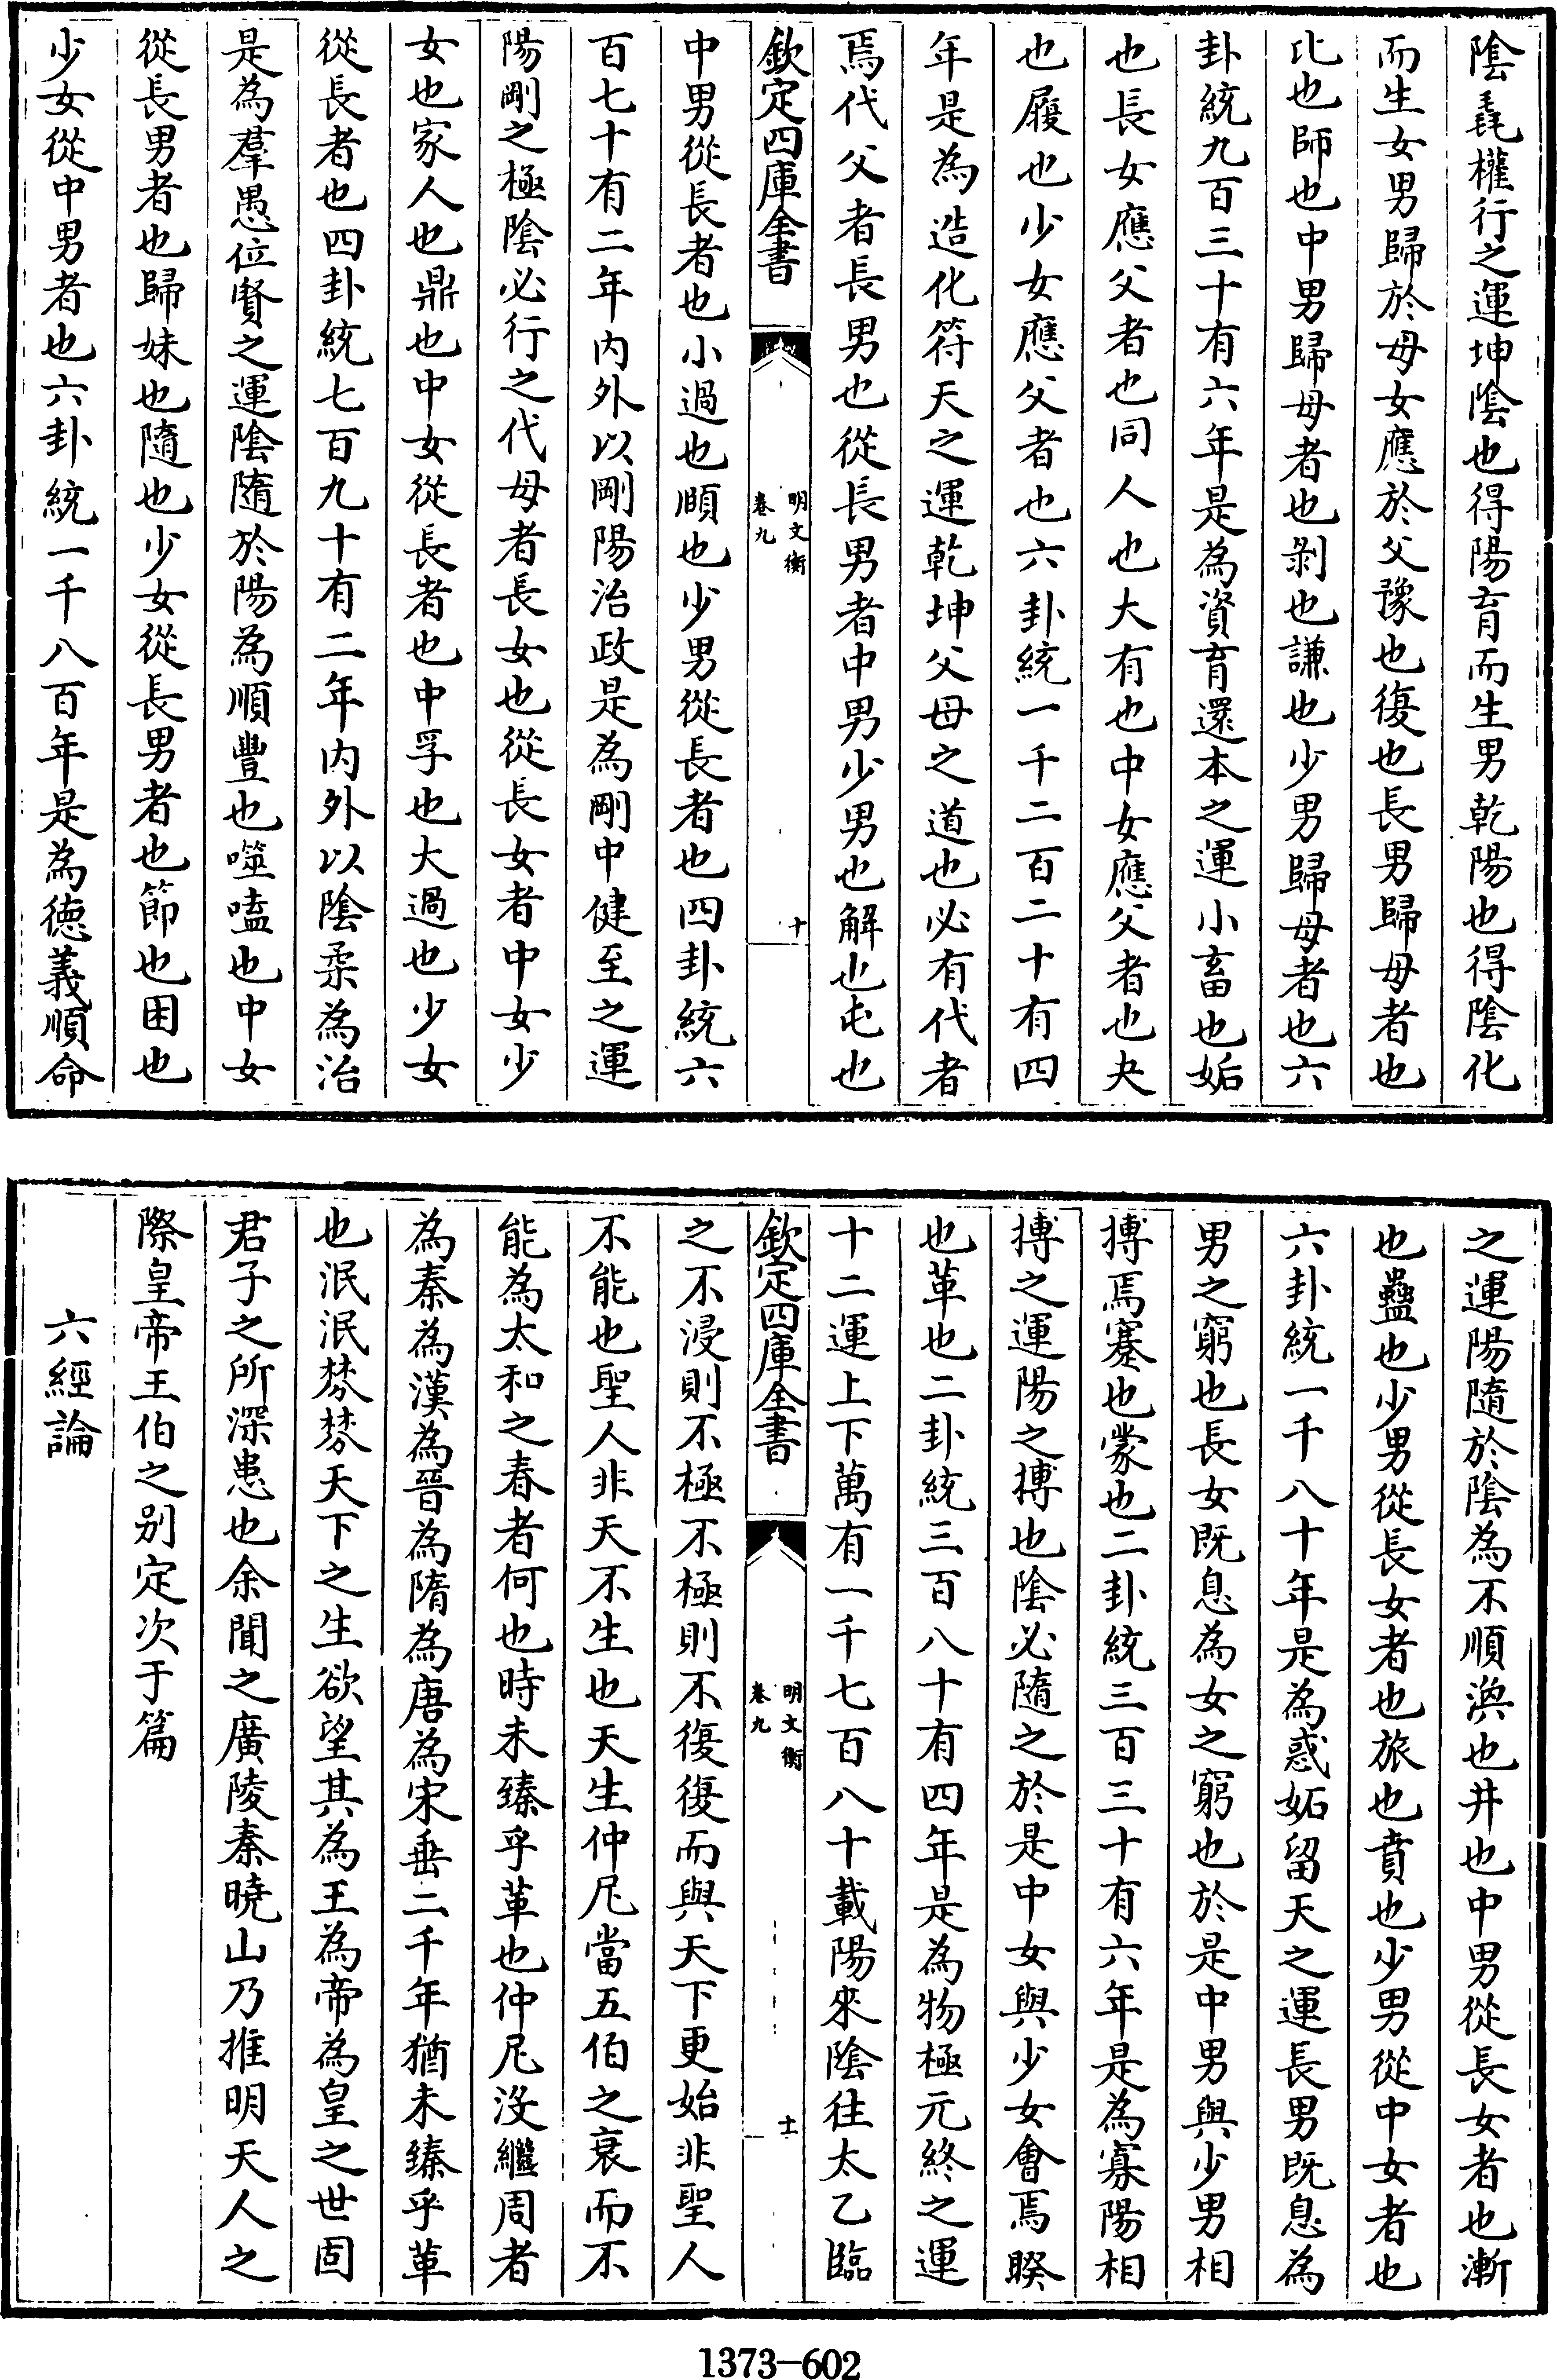 陰毳權行之運坤陰也得陽育而生男乾陽也得陰化
而生女男歸於母女應於父豫也復也長男歸母者也
比也師也中男歸母者也剝也謙也少男歸母者也六
卦統九百三十有六年是為資育還本之運小畜也姤
也長女應父者也同人也大有也中女應父者也夬
也履也少女應父者也六卦統一千二百二十有四
年是為造化符天之運乾坤父母之道也必有代者
焉代父者長男也從長男者中男少男也解也屯也
欽定四庫全書
明文衡
卷九
十
中男從長者也小過也頤也少男從長者也四卦統六
百七十有二年內外以剛陽治政是為剛中健至之運
陽剛之極陰必行之代母者長女也從長女者中女少
女也家人也鼎也中女從長者也中孚也大過也少女
從長者也四卦統七百九十有二年內外以陰柔為治
是為羣愚位賢之運陰隨於陽為順豐也噬嗑也中女
從長男者也歸妹也隨也少女從長男者也節也困也
少女從中男者也六卦統一千八百年是為德義順命
之運陽隨於陰為不順渙也井也中男從長女者也漸
也蠱也少男從長女者也旅也賁也少男從中女者也
六卦統一千八十年是為惑妬留天之運長男既息為
男之窮也長女既息為女之窮也於是中男與少男相
摶焉蹇也蒙也二卦統三百三十有六年是為寡陽相
摶之運陽之摶也陰必隨之於是中女與少女會焉睽
也革也二卦統三百八十有四年是為物極元終之運
十二運上下萬有一千七百八十載陽來陰往太乙臨
欽定四庫全書
明文衡
卷九
十一
之不浸則不極不極則不復復而與天下更始非聖人
不能也聖人非天不生也天生仲尼當五伯之衰而不
能為太和之春者何也時未臻乎革也仲尼沒繼周者
為秦為漢為晉為隋為唐為宋垂二千年猶未臻乎革
也泯泯棼棼天下之生欲望其為王為帝為皇之世固
君子之所深患也余聞之廣陵秦曉山乃推明天人之
際皇帝王伯之別定次于篇
六經論
1373-602